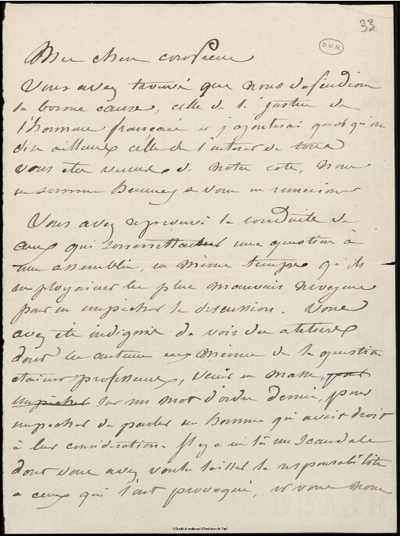 33
B.M.N.
Mon cher confrere
Vous avez trouvé que nous defendions
la bonne cause, celle de la justice de
l'honneur français et j'ajouterai quoi qu'on
dise ailleurs celle de l'interet de tous
vous etes venus de notre coté, nous
en sommes heureux & vous en remercions
Vous avez reprouvé la conduite de
ceux qui soumettaient une question à
une assemblée, en même temps qu'ils
employaient les plus mauvais moyens
pour en empêcher la discussion. Vous
avez été indignés de voir des ateliers
dont les auteurs eux mêmes de la question
étaient professeurs, venir en masse, pour
empêcher sur un mot d'ordre donné, pour
empecher de parler un homme qui avait droit
à leur consideration. Il y a eu là un scandale
dont vous avez voulu laisser la responsabilité
a ceux qui l'ont provoqué, et vous nous